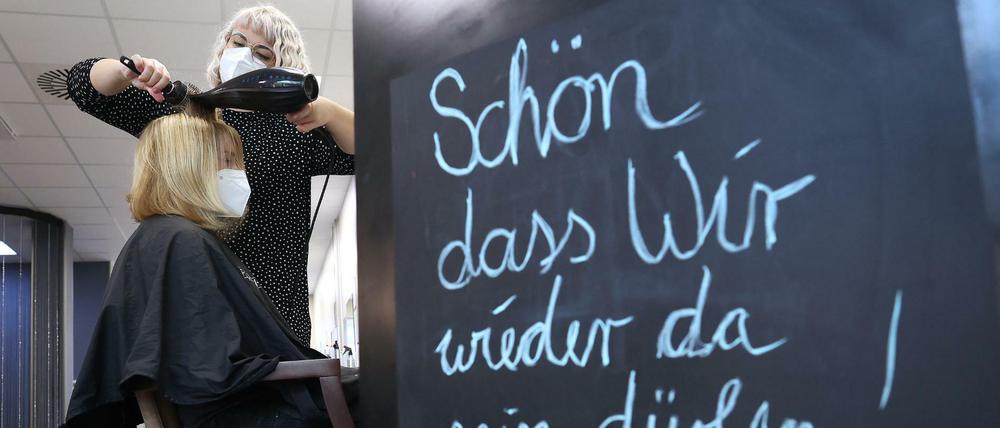 Schön
dass Wir
wieder da
sein dürfen !